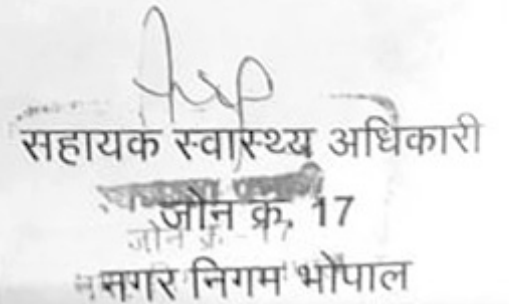 सहायक स्वास्थ्य अधिकारी
जोन क्र. 17
नगर निगम भोपाल